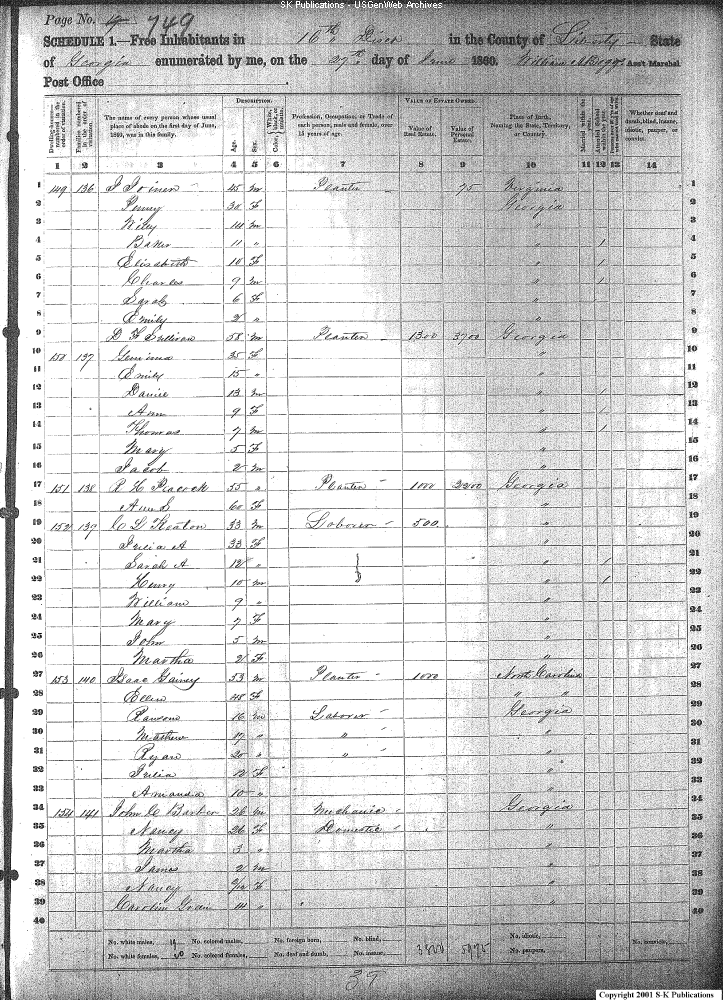 SK Publications - USGenWeb Archives
Page No. 9 749
SCHEDULE 1.—Free Inhabitants in 16th Dist in the County of Liberty State
of Georgia enumerated by me, on the 27th day of June 1860. William Ass't Marshal
Post Office
DESCRIPTION. VALUE OF ESTATE OWNED.
Dwelling-houses—numbered in the order of visitation.
Families numbered in the order of visitation.
The name of every person whose usual place of abode on the first day of June, 1860, was in this family.
Age.
Sex.
White, black, or mulatto. Color.
Profession, Occupation, or Trade of each person, male and female, over 15 years of age.
Value of Real Estate.
Value of Personal Estate.
Place of Birth, Naming the State, Territory, or Country.
Married within the year.
Attended School within the year.
Whether deaf and dumb, blind, insane, idiotic, pauper, or convict.
1 2 3 4 5 6 7 8 9 10 11 12 13 14
1 149 136 J Joiner 45 m Planter 75 Virginia 1
2 Penny 30 F Georgia 2
3 Wiley 14 m " 3
4 Baker 11 " " 1 4
5 Elisabeth 10 F " 1 5
6 Charles 9 m " 1 6
7 Sarah 6 F " 7
8 Emily 2 " " 8
9 D F Sullivan 58 m Planter 1300 3700 Georgia 9
10 150 137 Gemima 35 F " 10
11 Emily 15 " " 11
12 Daniel 13 m " 1 12
13 Ann 9 F " 1 13
14 Thomas 7 m " 1 14
15 Mary 5 F " 15
16 Jacob 2 m " 16
17 151 138 R H Peacock 55 " Planter 1000 2200 Georgia 17
18 Ann S 60 F " 18
19 152 139 C L Keaton 33 m Laborer 500 " 19
20 Julia A 33 F " 20
21 Sarah A 12 " " 1 21
22 Henry 10 m " 1 22
23 William 9 " " 23
24 Mary 7 F " 24
25 John 5 m " 25
26 Martha 2 F " 26
27 153 140 Isaac Gainey 53 m Planter 1000 North Carolina 27
28 Ellen 48 F " " 28
29 Ransom 16 m Laborer Georgia 29
30 Mathew 17 " " " 30
31 Ryan 20 " " " 31
32 Julia 12 F " 32
33 Amandia 10 " " 33
34 154 141 John C Barber 26 m Mechanic Georgia 34
35 Nancy 26 F Domestic " 35
36 Martha 3 " " 36
37 James 2 m " 37
38 Nancy F " 38
39 Caroline 14 " " 39
40 40
No. white males, 19 No. colored males, No. foreign born, No. blind, No. idiotic, No. convicts,
No. white females, 20 No. colored females, No. deaf and dumb, No. insane, 5975 No. paupers,
39
Copyright 2001 S-K Publications